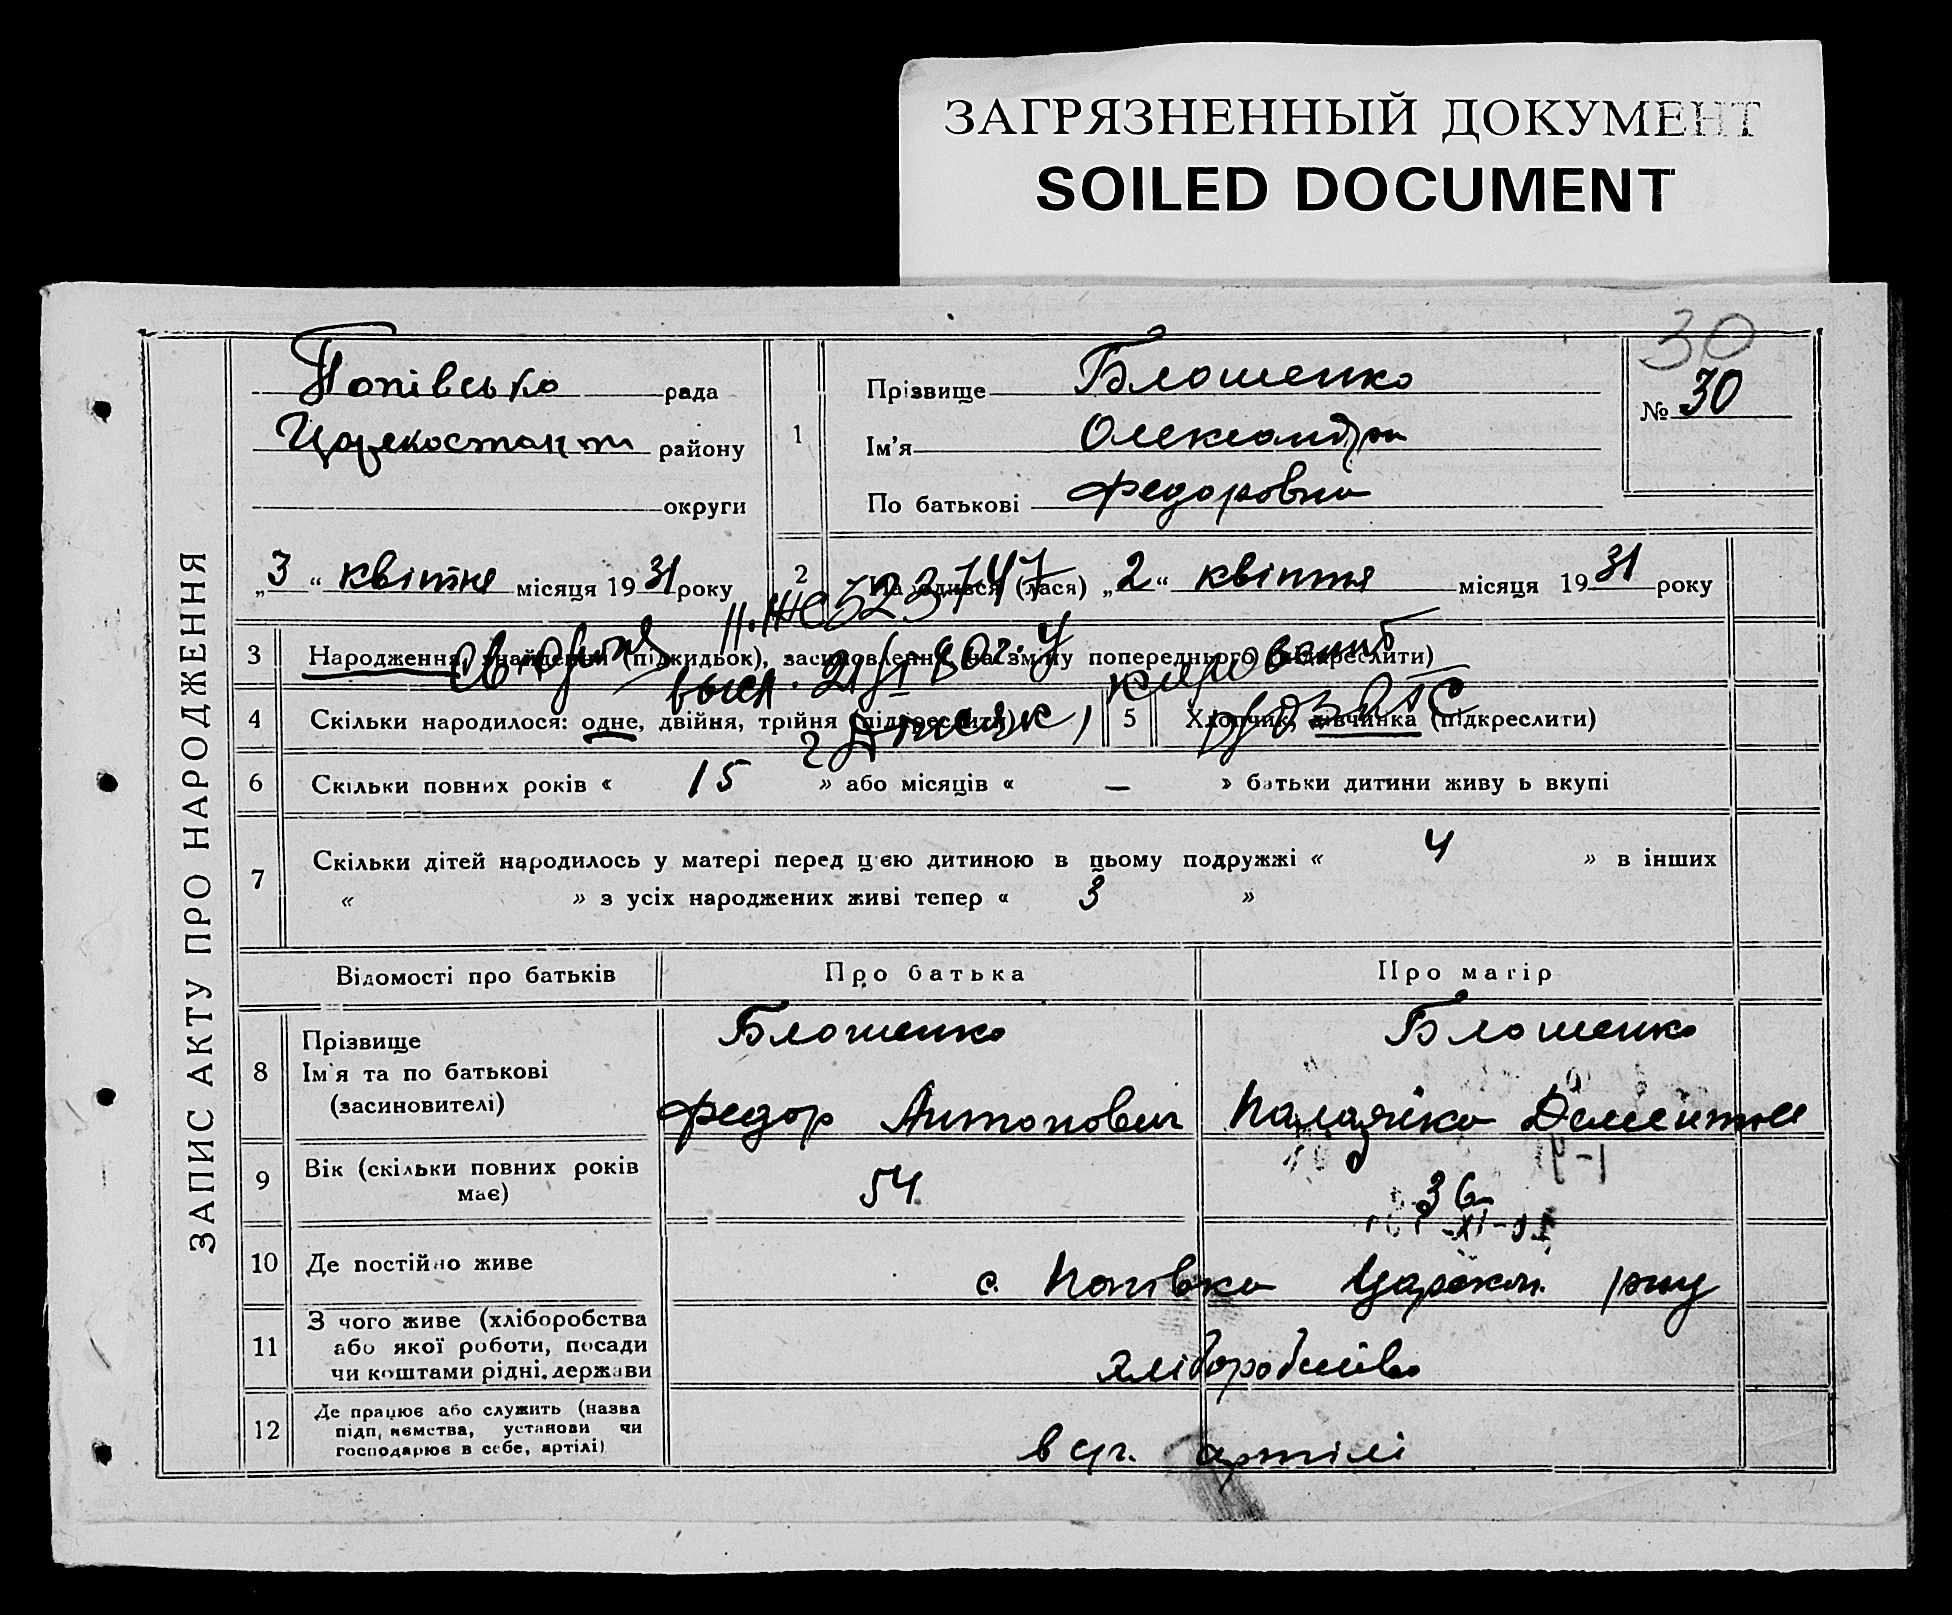 ЗАГРЯЗНЕННЫЙ ДОКУМЕНТ
SOILED DOCUMENT
30
ЗАПИС АКТУ ПРО НАРОДЖЕННЯ
Попівська рада
Царекостант району
округи
1
Прізвище Блошенко
Ім'я Олександра
По батькові Федоровна
№ 30
„3“ квітня місяця 1931 року
2 На одився (лася) „2“ квітня місяця 1931 року
II-ЖС 323747
3 Народження, знайдений (підкидьок), засиновлення на зміну попереднього (підкреслити)
выст. 21/I-80г.
4 Скільки народилося: одне, двійня, трійня (підкреслити)
5 Хлопчик, дівчинка (підкреслити)
6 Скільки повних років « 15 » або місяців « — » батьки дитини живу ь вкупі
7 Скільки дітей народилось у матері перед цією дитиною в цьому подружжі « 4 » в інших
« » з усіх народжених живі тепер « 3 »
Відомості про батьків Про батька Про матір
8 Прізвище
Ім'я та по батькові
(засиновителі)
Блошенко Блошенко
Федор Антонович
9 Вік (скільки повних років
має)
54 36
10 Де постійно живе с. Попівка Царекон. р-ну
11 З чого живе (хліборобства
або якої роботи, посади
чи коштами рідні, держави
хліборобство
12 Де працює або служить (назва
підприємства, установи чи
господарює в себе, артілі)
в с/г. артілі